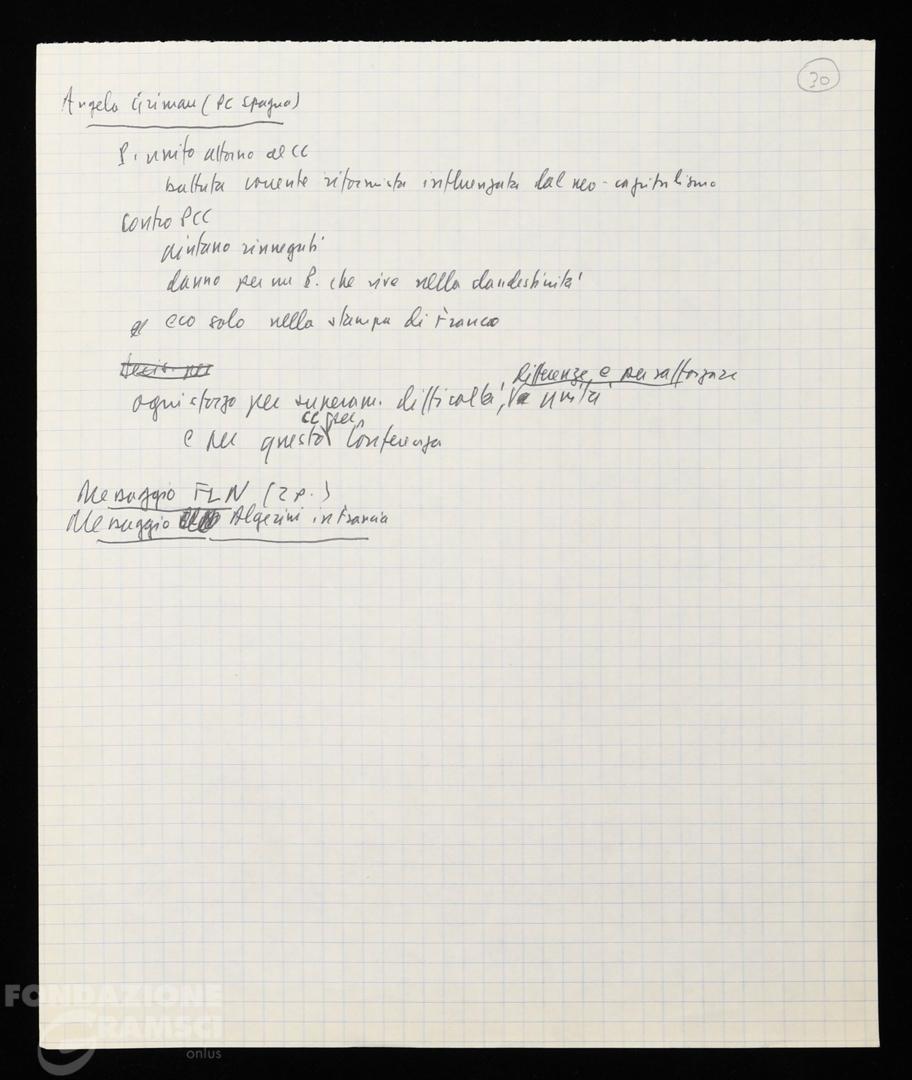 30
Angela Griman (PC Spagna)
P. unito attorno al CC
battuta corrente riformista influenzata dal neo-capitalismo
contro PCC
aiutano rinnegati
danno per un P. che vive nella clandestinità
eco solo nella stampa di Franco
differenze, e per rafforzare
ogni sforzo per superam. difficoltà, unità
CC per
e per questo Conferenza
Messaggio FLN (2 p.)
Messaggio Algerini in Francia
FONDAZIONE
GRAMSCI
onlus